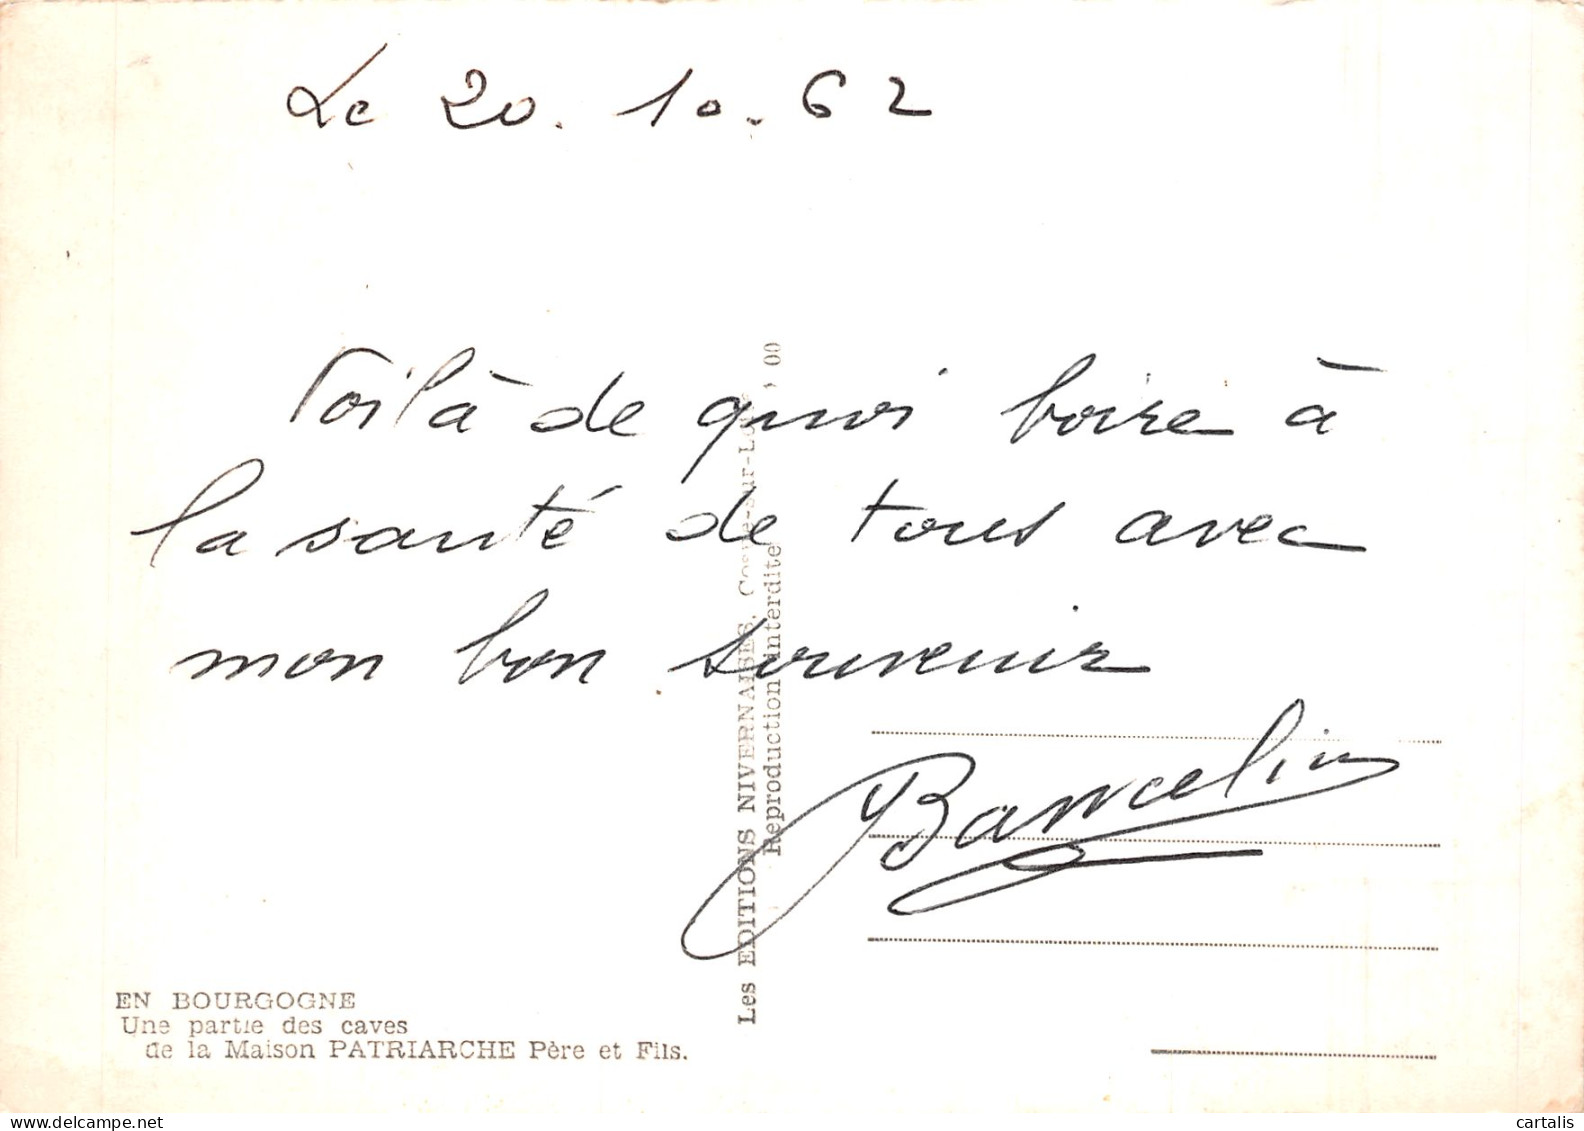 Le 20.10.62
Voilà de quoi boire à
la santé de tous avec
mon bon souvenir
Bancelin
Les EDITIONS NIVERNAISES, Cosne-sur-Loire
Reproduction interdite
EN BOURGOGNE
Une partie des caves
de la Maison PATRIARCHE Père et Fils.
cartalis